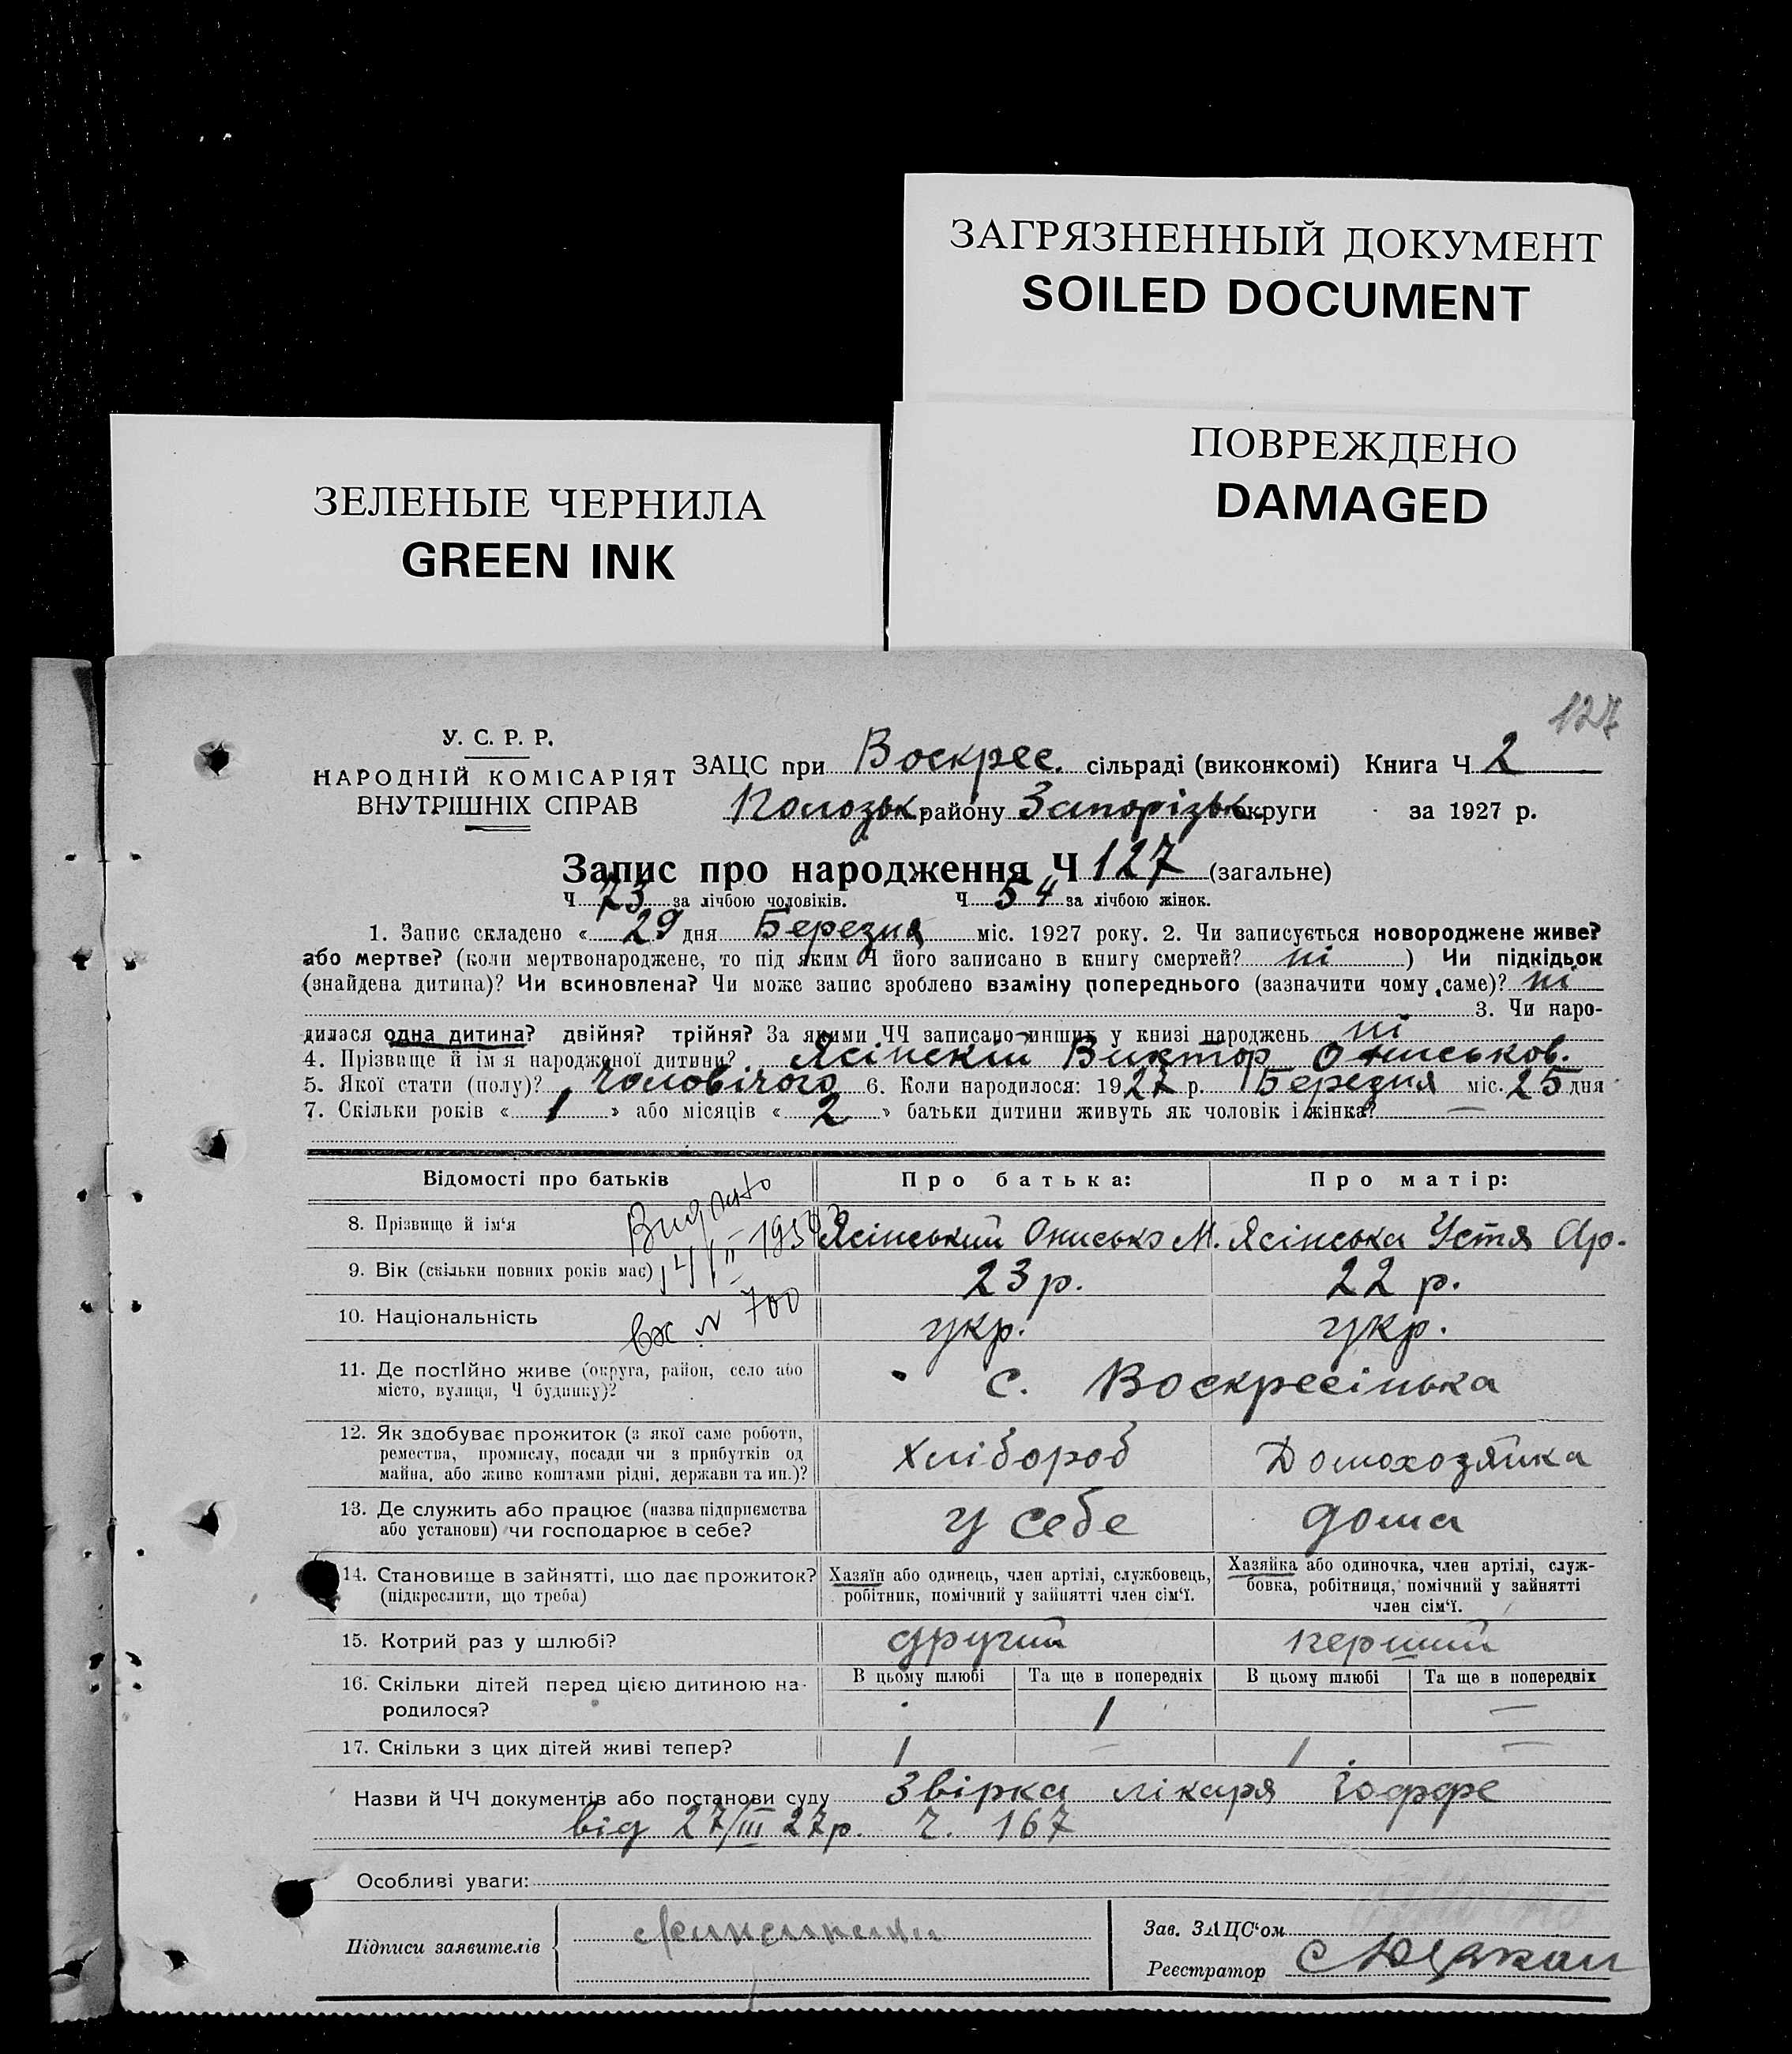 ЗАГРЯЗНЕННЫЙ ДОКУМЕНТ
SOILED DOCUMENT
ПОВРЕЖДЕНО
DAMAGED
ЗЕЛЕНЫЕ ЧЕРНИЛА
GREEN INK
127
У. С. Р. Р.
НАРОДНІЙ КОМІСАРІЯТ
ВНУТРІШНІХ СПРАВ
ЗАЦС при Воскрес. сільраді (виконкомі) Книга Ч 2
району Запорізьк округи за 1927 р.
Запис про народження Ч 127 (загальне)
Ч 73 за лічбою чоловіків. Ч 54 за лічбою жінок.
1. Запис складено « 29 дня Березня міс. 1927 року. 2. Чи записується новороджене живе?
або мертве? (коли мертвонароджене, то під яким Ч його записано в книгу смертей? ні ) Чи підкідьок
(знайдена дитина)? Чи всиновлена? Чи може запис зроблено взаміну попереднього (зазначити чому саме)? ні
3. Чи наро-
дилася одна дитина? двійня? трійня? За якими ЧЧ записано инших у книзі народжень ні
4. Прізвище й ім'я народженої дитини? Ясінскій Виктор Ониськов.
5. Якої стати (полу)? чоловічого 6. Коли народилося: 1927 р. Березня міс. 25 дня
7. Скільки років « 1 » або місяців « 2 » батьки дитини живуть як чоловік і жінка? —
Відомості про батьків Про батька: Про матір:
Видано
14/II 195
вх № 700
8. Прізвище й ім'я Ясінський Онисько М. Ясінська Устя Ар.
9. Вік (скільки повних років має) 23 р. 22 р.
10. Національність укр. укр.
11. Де постійно живе (округа, район, село або
місто, вулиця, Ч будинку)? с. Воскресінька
12. Як здобуває прожиток (з якої саме роботи,
ремества, промислу, посади чи з прибутків од
майна, або живе коштами рідні, держави та ин.)? Хлібороб Домохозяйка
13. Де служить або працює (назва підприємства
або установи) чи господарює в себе? у себе дома
14. Становище в зайнятті, що дає прожиток?
(підкреслити, що треба)
Хазяїн або одинець, член артілі, службовець,
робітник, помічний у зайнятті член сім'ї.
Хазяйка або одиночка, член артілі, служ-
бовка, робітниця, помічний у зайнятті
член сім'ї.
15. Котрий раз у шлюбі? другий перший
16. Скільки дітей перед цією дитиною на-
родилося?
В цьому шлюбі Та ще в попередніх В цьому шлюбі Та ще в попередніх
1 —
17. Скільки з цих дітей живі тепер? 1 — 1 —
Назви й ЧЧ документів або постанови суду Звірка лікаря Іоффе
від 27/III 27 р. ч. 167
Особливі уваги:
Підписи заявителів
Зав. ЗАЦС'ом
Реєстратор